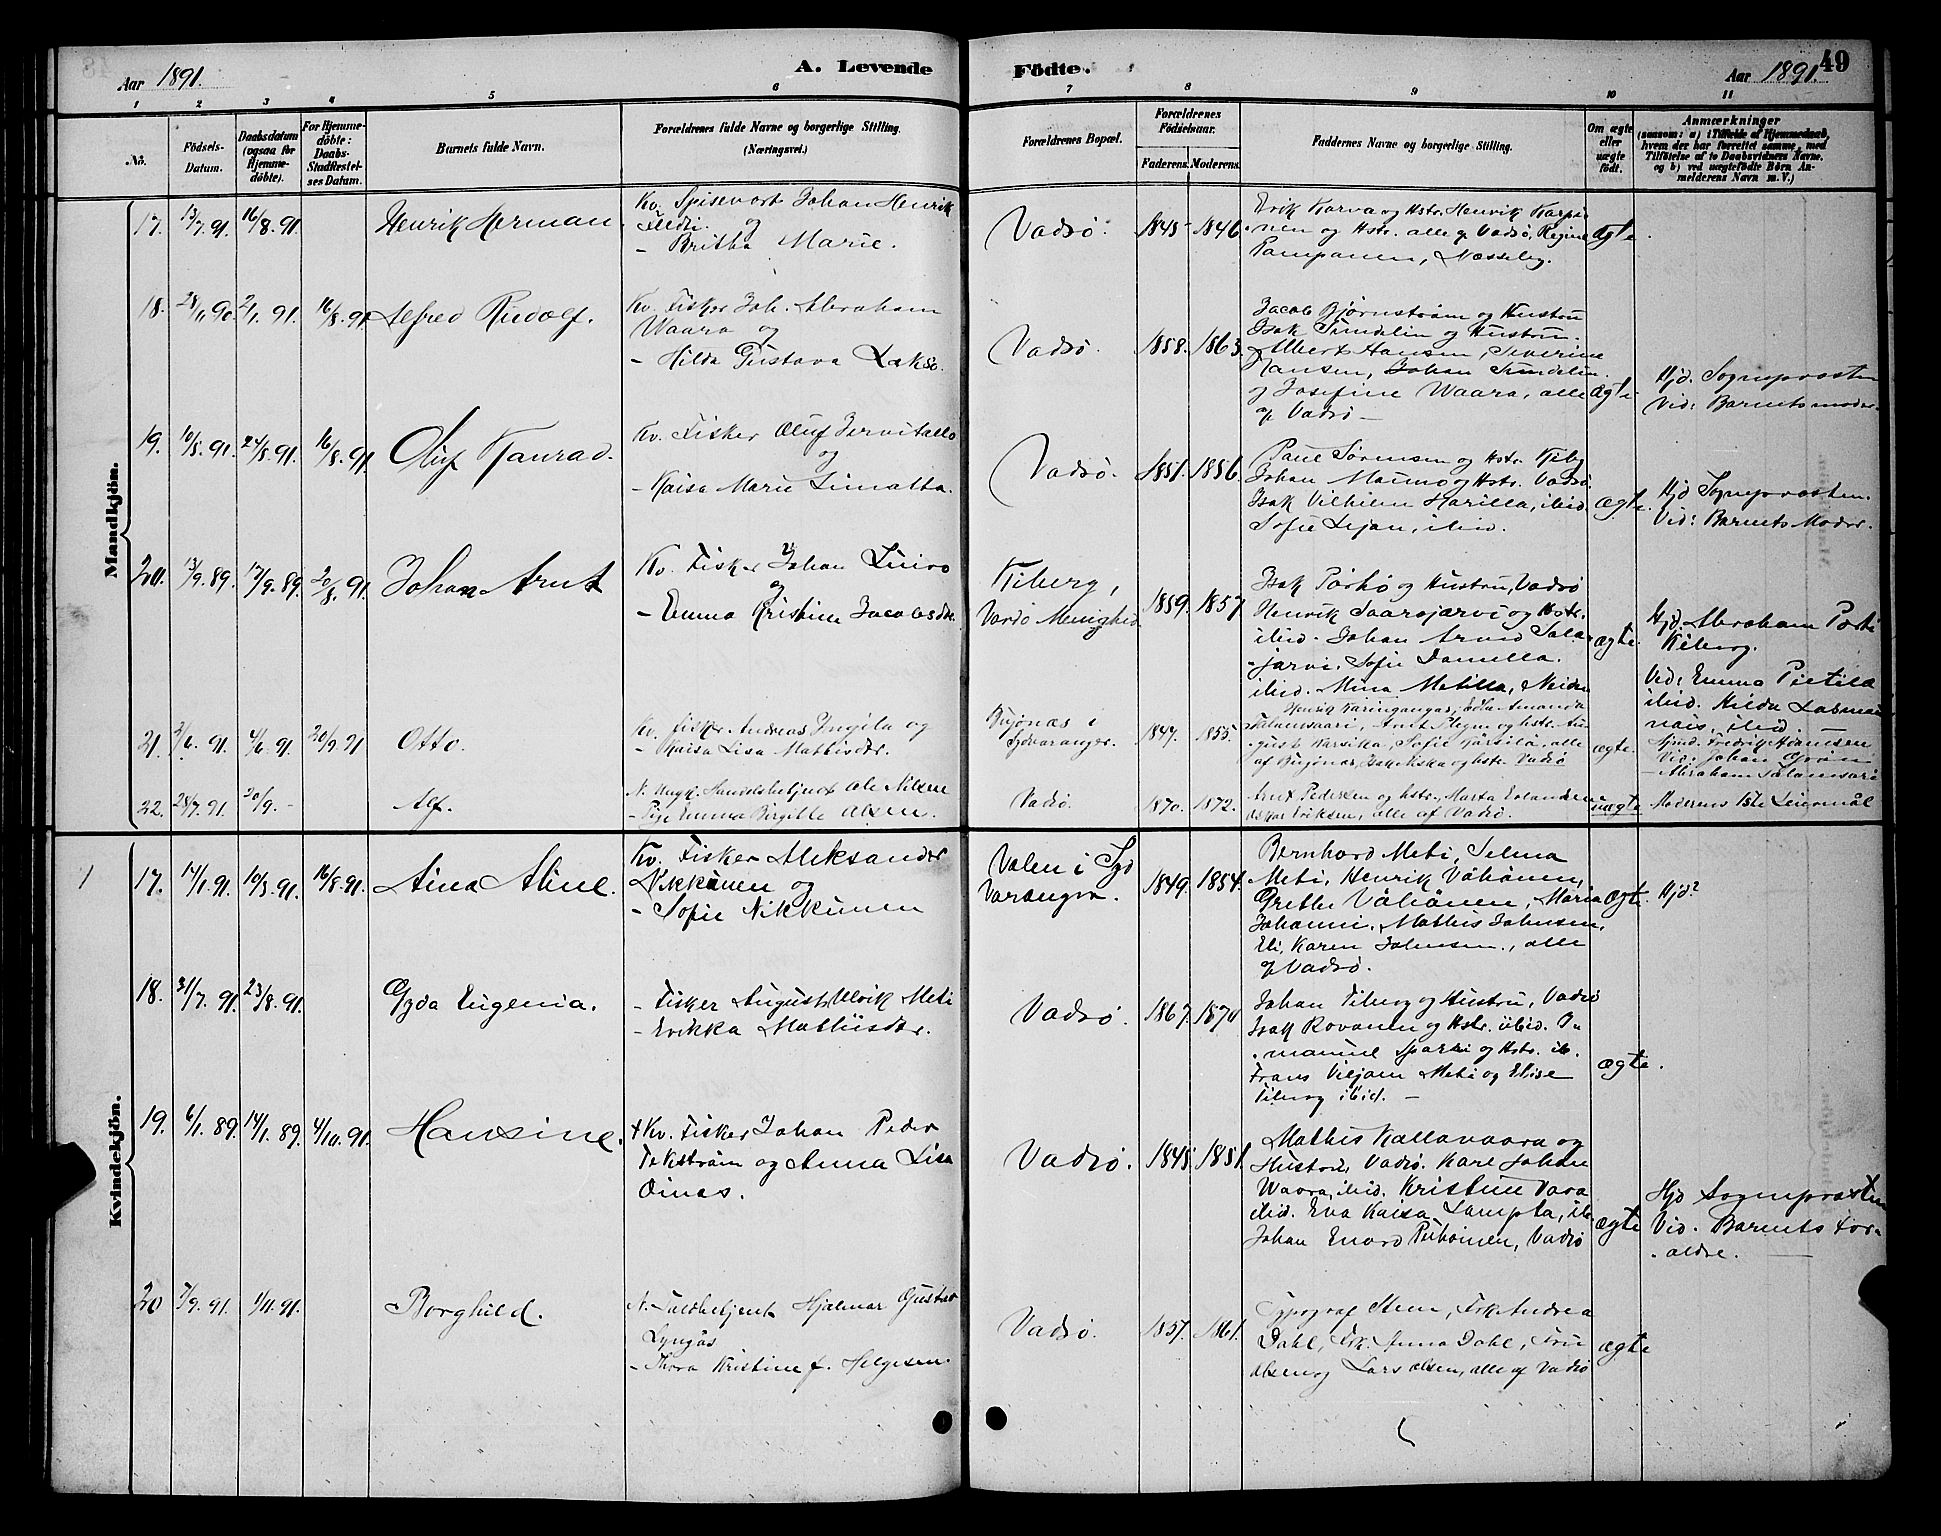 Aar 1891. A. Levende Födte. Aar 1891. 49
1 2 3 4 5 6 7 8 9 10 11
No. Födsels-Datum. Daabsdatum (ogsaa for Hjemme-döbte). For Hjemme-döbte: Daabs-Stadfæstel-ses Datum. Barnets fulde Navn. Forældrenes fulde Navne og borgerlige Stilling. (Næringsvei.) Forældrenes Bopæl. Forældrenes Födselsaar. Faderens. Moderens. Faddernes Navne og borgerlige Stilling. Om ægte eller uægte födt. Anmærkninger (saasom: a) i Tilfælde af Hjemmedaab, hvem der har forrettet samme, med Tilföielse af to Daabsvidners Navne, og b) ved uægtefödte Börn An-melderens Navn m. V.)
Mandkjön.
17. 13/7. 91. 16/8. 91. Henrik Herman
Kv. Spisevært Johan Henrik
og
- Britha Marie.
Vadsø. 1845 1846.
Erik Karva og Hstr. Henrik Karpi
nen og Hstr. alle af Vadsø, Regine
Pampanen, Nesseby.
ægte.
18. 28/11 90. 2/1. 91. 16/8. 91. Alfred Rudolf.
Kv. Fisker Joh. Abraham
Waara og
- Hilda Gustava Lakso.
Vadsø. 1858. 1863.
Jacob Bjørnstrøm og Hustru
Isak Sundelin og Hustru.
Albert Hansen, Severine
Hansen, Johan Sundelin.
og Josefine Waara, alle
af Vadsø —
ægte.
Hjd. Sognepræsten
Vid: Barnets moder.
19. 10/8. 91. 24/8. 91. 16/8. 91. Oluf Konrad.
Kv. Fisker Oluf Jervitallo
og
- Kaisa Marie Limatta.
Vadsø. 1851. 1856.
Paul Sørensen og Hstr. Kiby
Johan Mauno og Hstr. Vadsø.
Isak Vilhelm Harilla, ibid.
Sofie Lejan, ibid.
ægte.
Hjd Sognepræsten.
Vid: Barnets Moder.
20. 13/9. 89. 17/9. 89. 20/8. 91. Johan Arnt
Kv. Fisker Johan Luiro
og
- Emma Kristine Jacobsdtr.
Kiberg,
Vardø Menighed 1859. 1857
Isak Pørhø og Hustru, Vadsø
Henrik Saarajærvi og Hstr.
ibid. Johan Arvid Sala-
jarvi, Sofie Daniella.
ibid. Mina Metilla, Neiden
ægte.
Hjd. Abraham
Kiberg.
Vid: Emma Pietilä
ibid. Hilda
ibid. —
21. 2/6. 91. 4/6. 91. 20/9. 91 Otto.
Kv. Fisker Andreas Yngila og
- Kaisa Lisa Mattisdtr.
Bugønæs i
Sydvaranger. 1847. 1855.
Henrik Karingangas, Edla Amanda
Salamsaari, Arndt Plym og hstr. Au-
gust Karsika, Sofie Karsila, alle
af Bugønæs, Isak Niska og hstr. Vadsø
ægte.
Hjmd. Fredrik Hansen
Vid: Johan
Abraham Salamsaari
22. 28/7. 91. 20/9. - Alf.
N. Ungk. Handelsbetjent Ole Nilsen
- Pige Emma Birgitte Olsen.
Vadsø. 1870. 1872.
Arnt Pedersen og hstr, Marta Erlandsen
Oskar Eriksen, alle af Vadsø.
uægte
Moderens 1ste Leiermål
Kvindekjön.
1 17. 14/1. 91. 10/3. 91. 16/8. 91. Aina Aline.
Kv. Fisker Aleksander
Nikkinen og
- Sofie Nikkinen
Valen i Syd
Varanger. 1849. 1854.
Bernhard Meti, Selma
Meti, Henrik Våhånen,
Grethe Våhånen, Maria
Johanni, Mathis Johnsen,
Eli, Karen Johnsen, alle
af Vadsø.
ægte.
Hjd?
18. 31/7. 91. 23/8. 91. Gyda Eugenia.
- Fisker August Ulrik Meti
- Erikka Mathisdtr.
Vadsø. 1867. 1870
Johan Tiberg og Hustru, Vadsø
Isak Rovanen og Hstr. ibid. I-
manuel Sparri og Hstr. ib.
Frans Viljam Meti og Elise
Tiberg ibid. —
ægte.
19. 6/1. 89. 14/1. 89. 4/10. 91. Hansine.
+ Kv. Fisker Johan Peder
Tekstrøm og Anna Lisa
Oinas.
Vadsø. 1845 1851.
Mathis Kallavaara og
Hustru, Vadsø. Karl Johan
Waara, ibid. Kristine Vara
ibid. Eva Kaisa Lampela, ib.
Johan Enard Pehonen, Vadsø
ægte
Hjd Sognepræsten
Vid. Barnets For-
ældre. —
20 7/9. 91. 1/11. 91. Borghild.
N. Toldbetjent Hjalmar Gustav
Lyngås
- Thora Kristine f. Helgesen.
Vadsø. 1857. 1861.
Typograf Stene, Frk. Andrea
Dahl, Frk. Anna Dahl, Fru
Olsen og Lars Olsen, alle af Vadsø
ægte